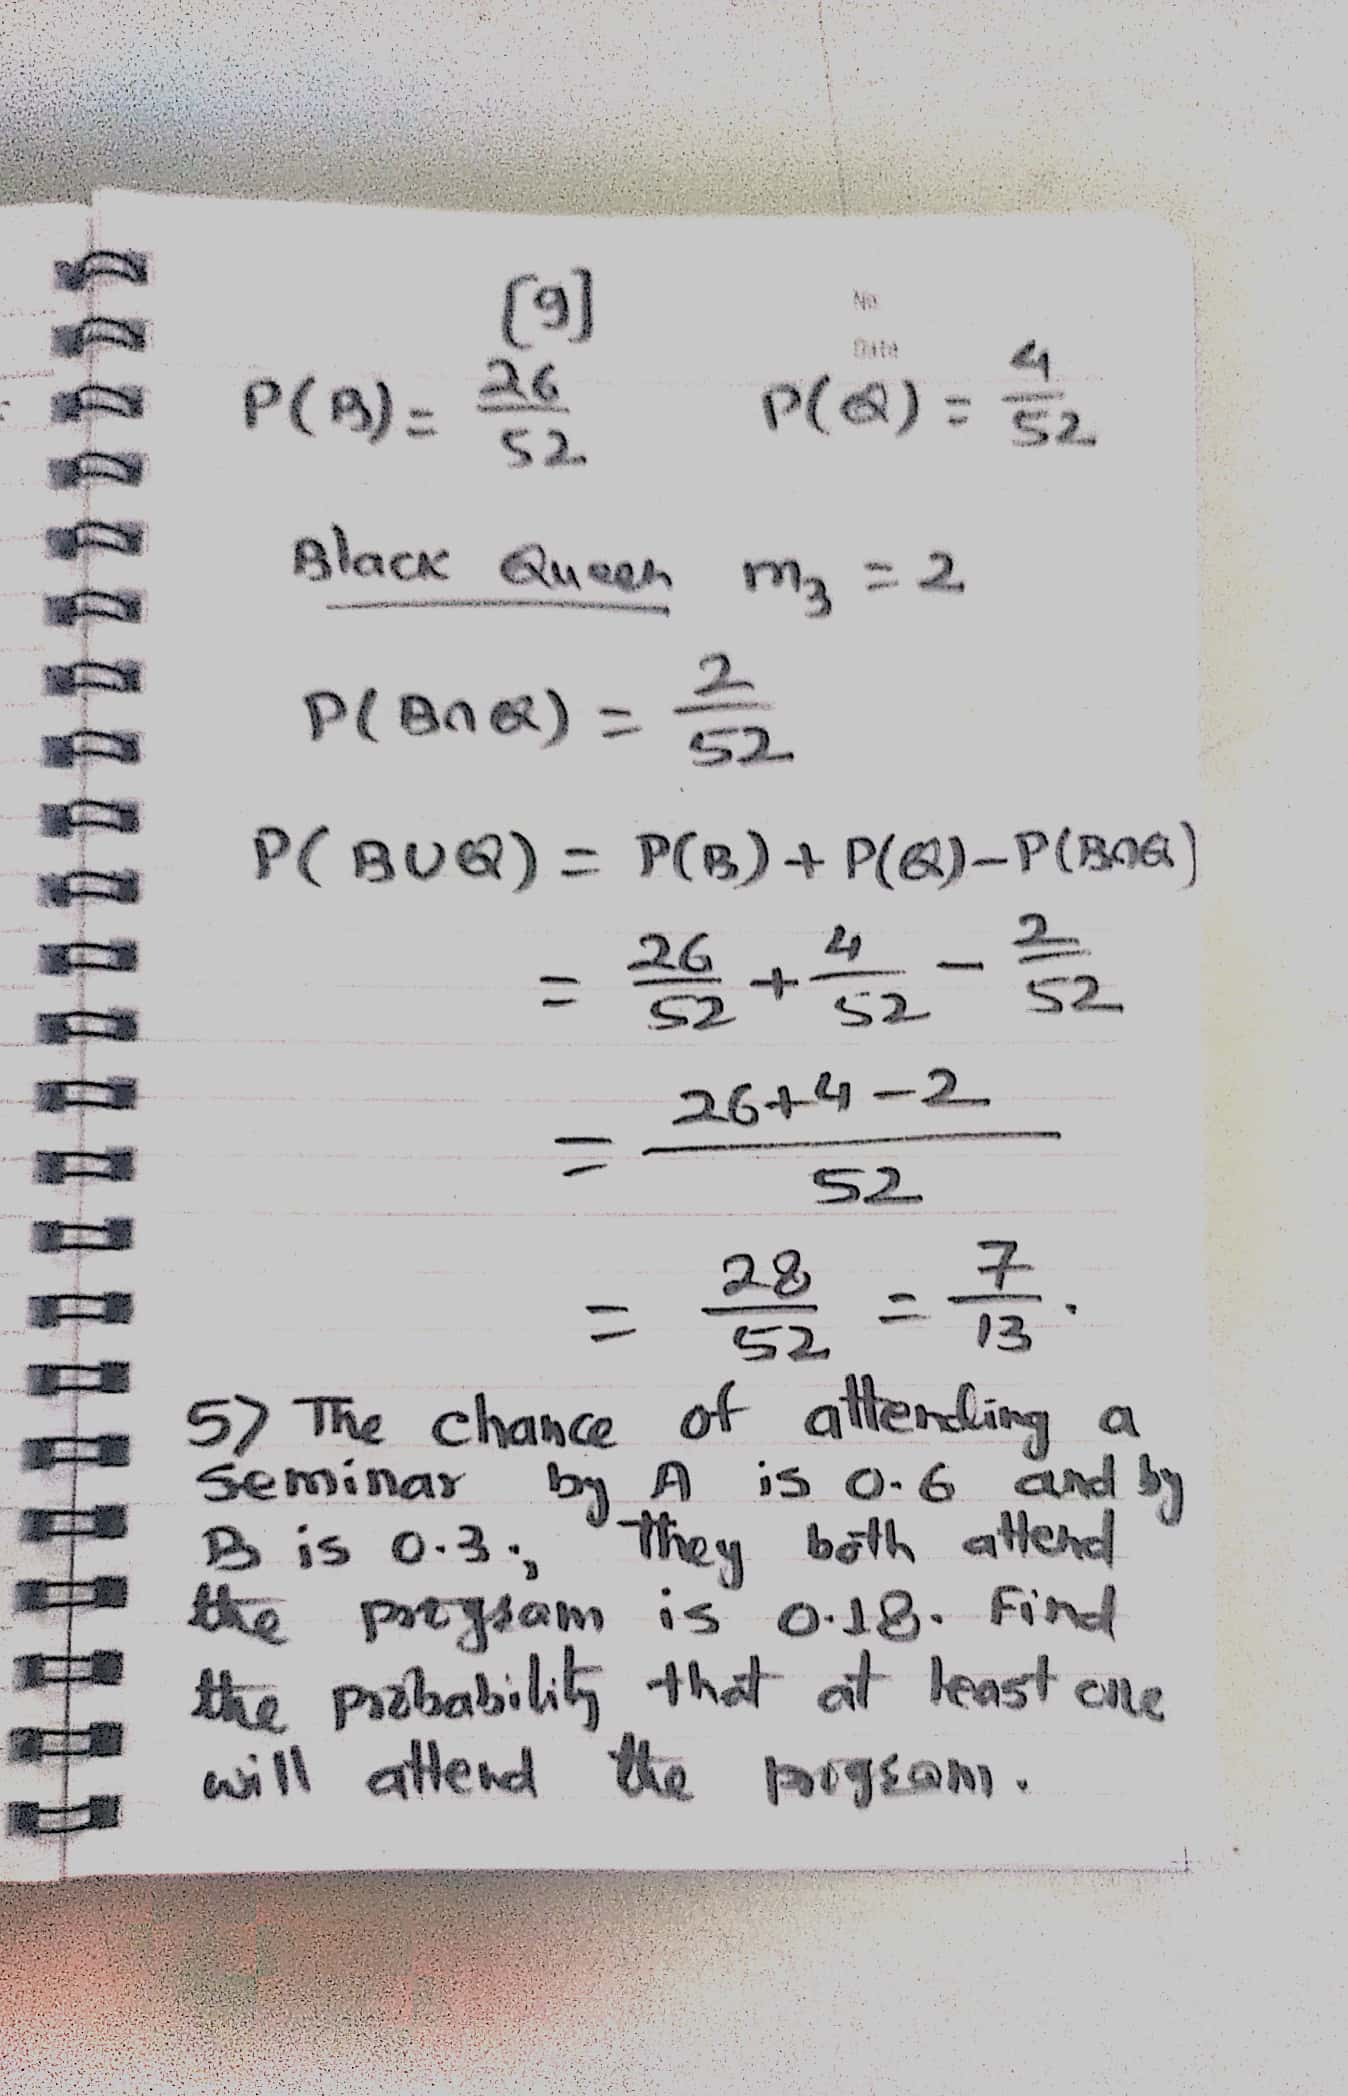 [9]
No.
Date
P(B) = 26/52 P(Q) = 4/52
Black Queen m₃ = 2
P(B∩Q) = 2/52
P(B∪Q) = P(B) + P(Q) – P(B∩Q)
= 26/52 + 4/52 – 2/52
= 26+4–2/52
= 28/52 = 7/13.
5) The chance of attending a
seminar by A is 0.6 and by
B is 0.3; They both attend
the program is 0.18. Find
the probability that at least one
will attend the program.